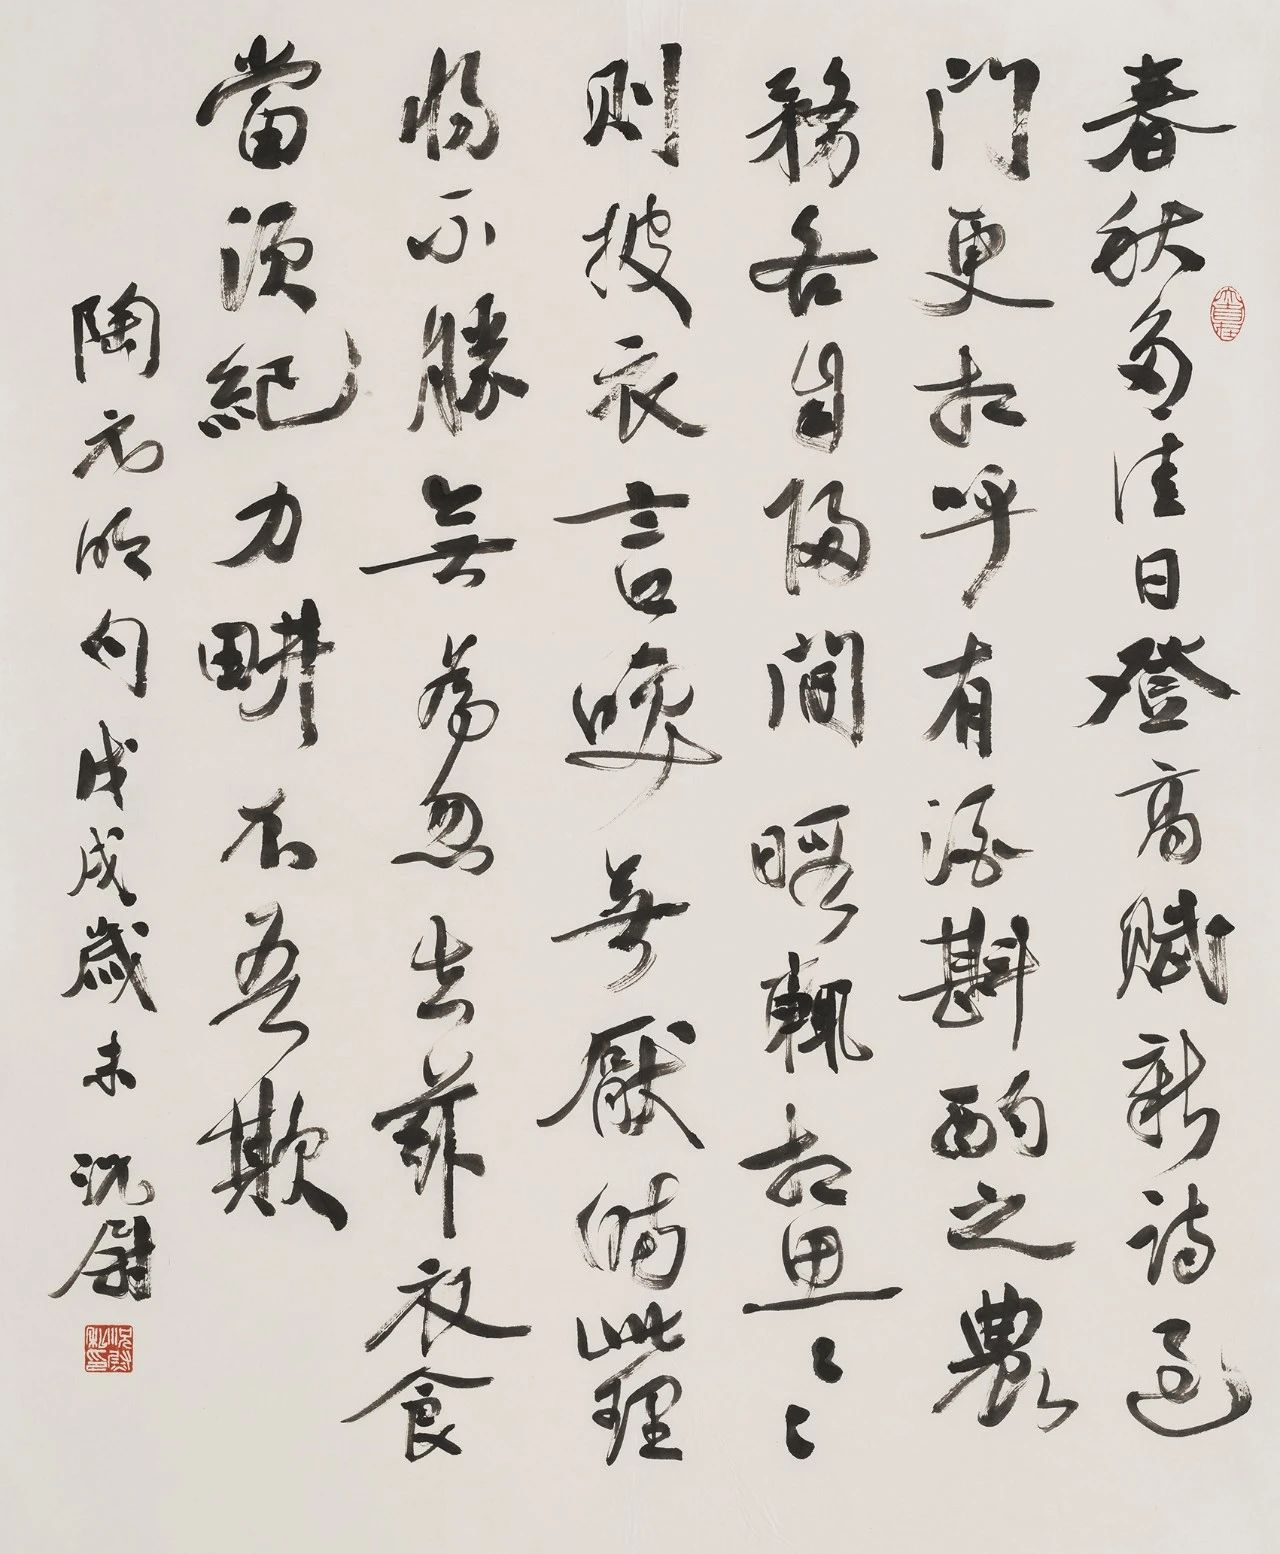 春秋多佳日登高賦新詩過
門更相呼有酒斟酌之農
務各自歸閒暇輒相思〻〻
則披衣言咲無厭時此理
將不勝無為忽去茲衣食
當須紀力畊不吾欺
陶元明句戊戌歲末況尉
況尉私印